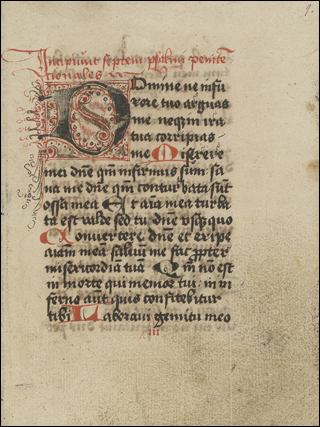 Incipiunt septem psalmi penite
tionales
Domine ne in fu
rore tuo arguas
me neqz in ira
tua corripias
me Miserere
mei dne qm infirmus sum sa
na me dne qm conturbata sūt
ossa mea Et aīa mea turba
ta est valde sed tu dne vsqz quo
Conuertere dne et eripe
aīam meā saluū me fac propter
misericordiā tuā Qm nō est
in morte qui memor tui in in
ferno aūt quis confitebitur
tibi Laboraui gemitu meo